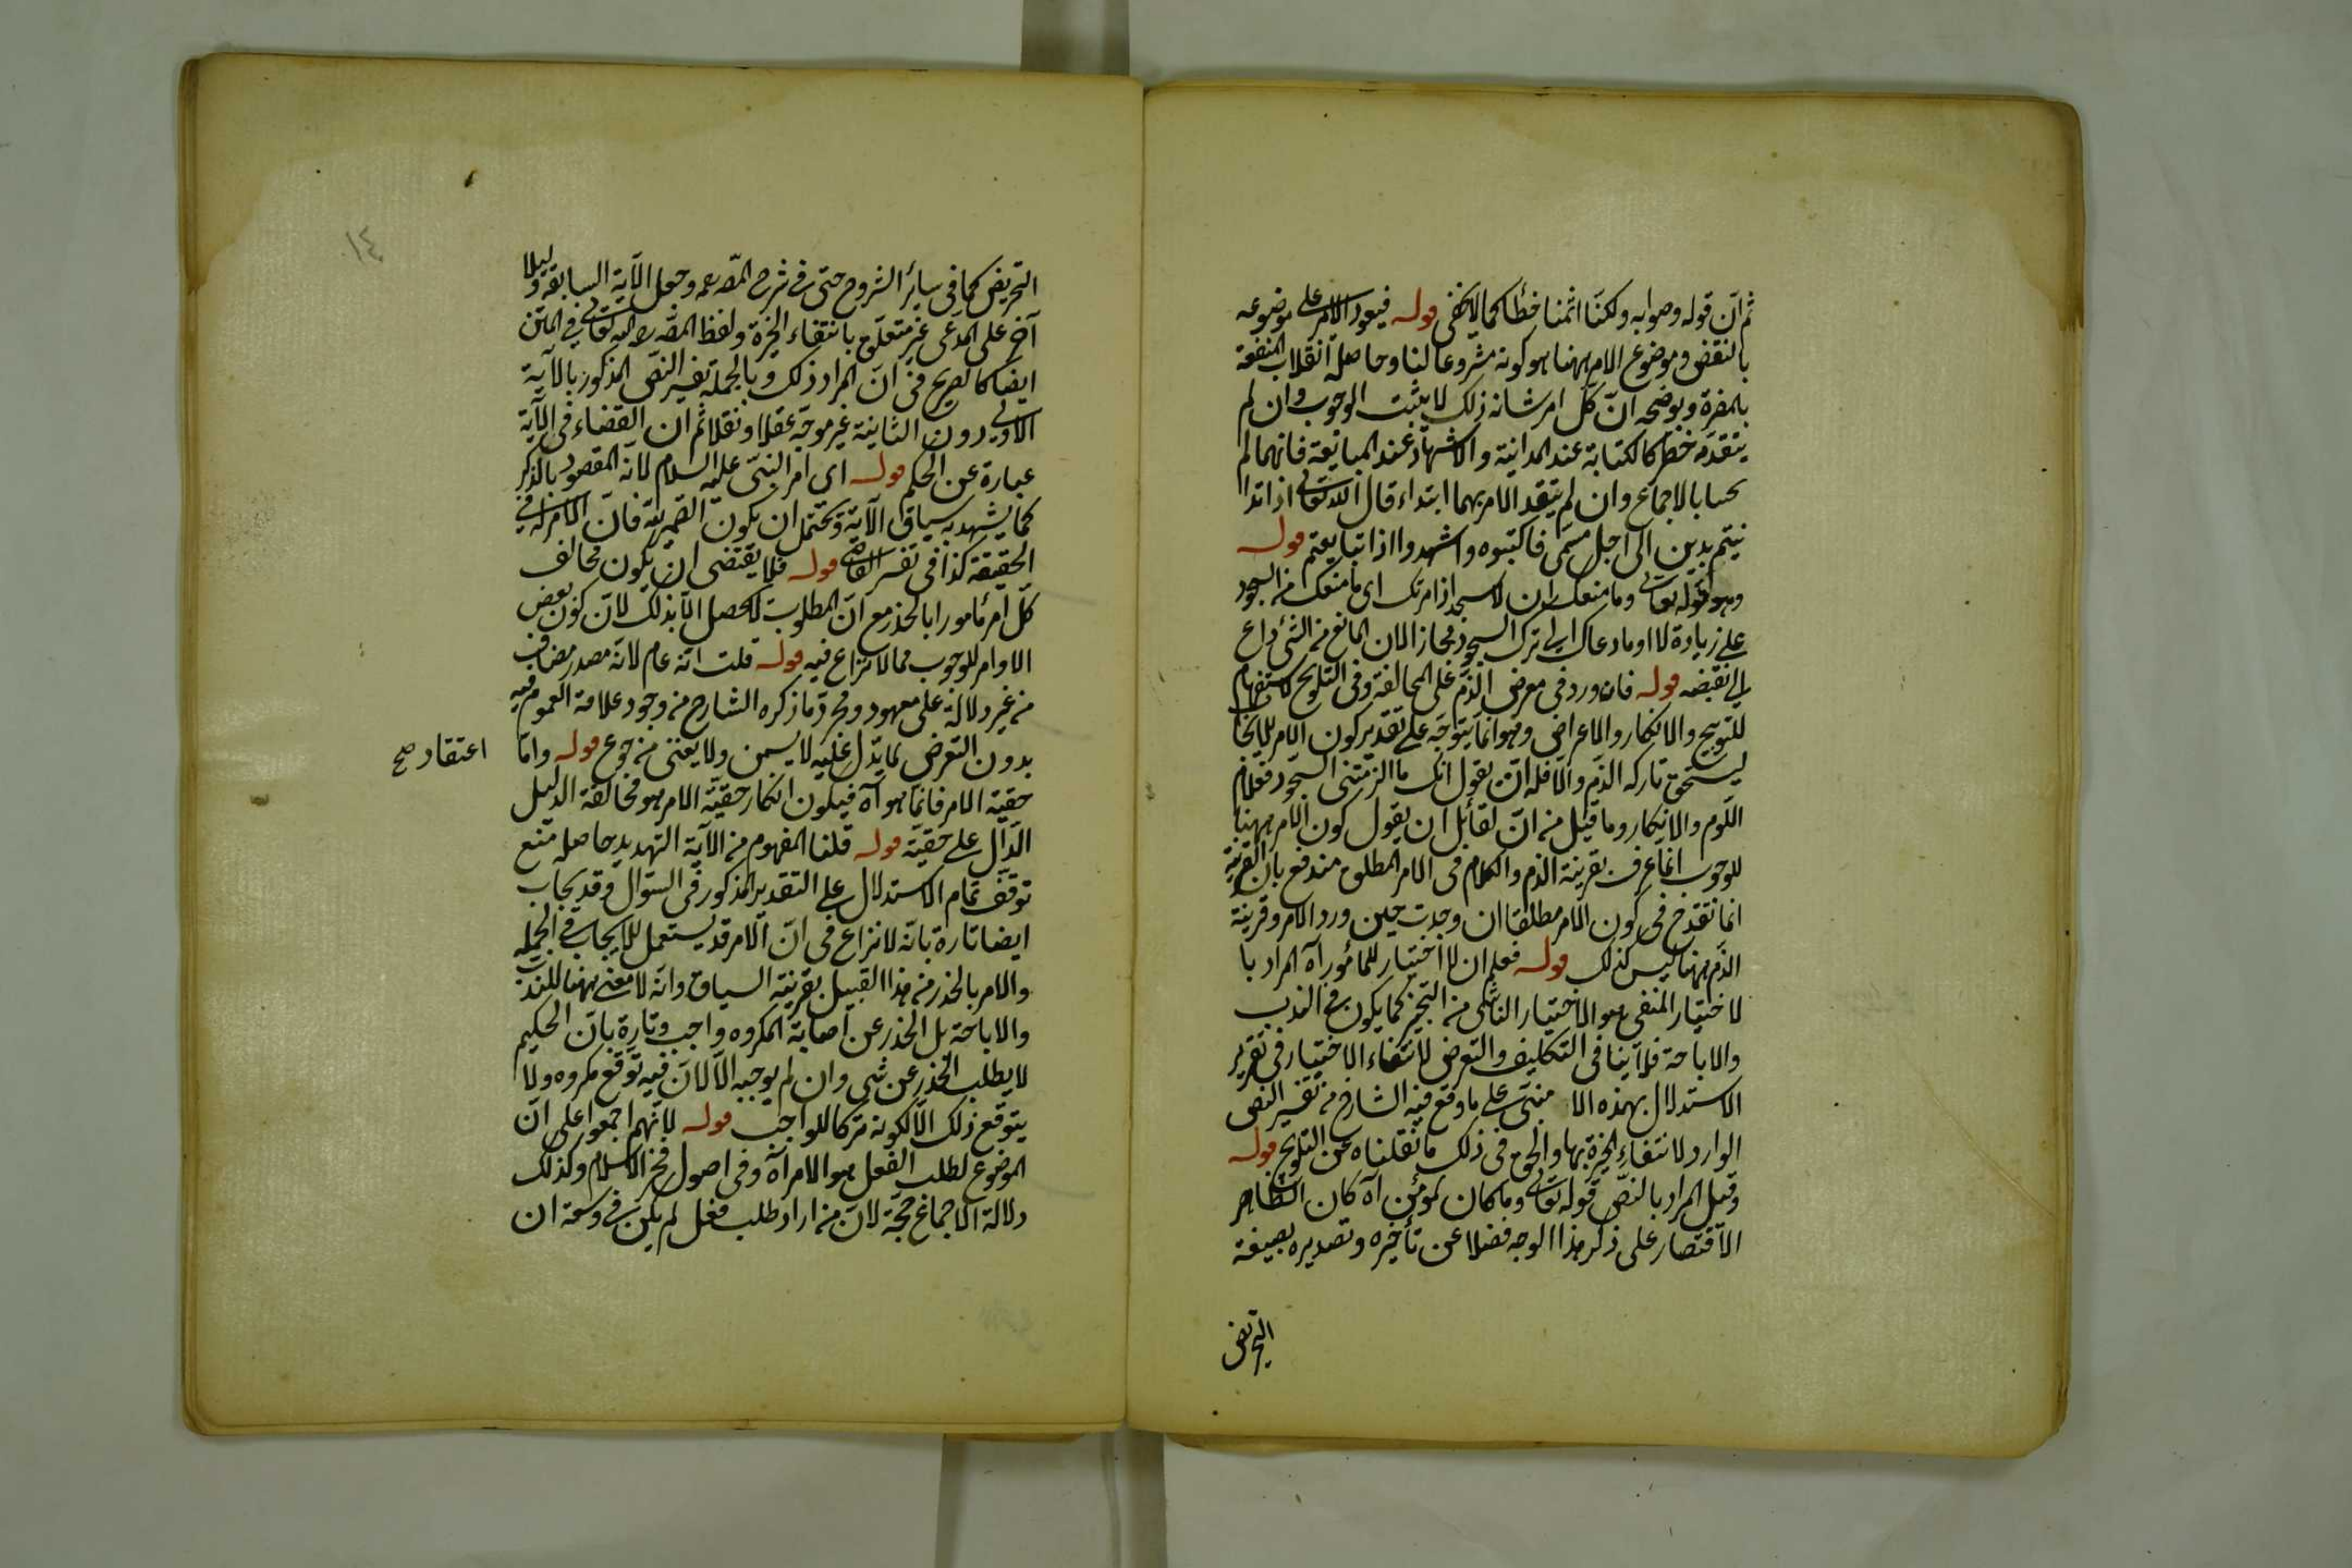 ثم ان قوله وصوابه ولكنا اثمنا خطأ كما لا يخفى قوله فيعود الامر على موضوعه
بالنقض وموضوع الامر ههنا هو كونه مشروعا لنا وحاصله انقلاب المنفعة
بالمضرة ويوضحه ان كل امر شانه ذلك لا يثبت الوجوب وان لم
يتقدمه خطر كالكتابة عند المداينة والاشهاد عند المبايعة فانهما لم
يجبا بالاجماع وان لم يتقدم الامر بهما ابتداء قال الله تعالى اذا تدا
ينتم بدين الى اجل مسمى فاكتبوه واشهدوا اذا تبايعتم قوله
وهو قوله تعالى وما منعك ان لا تسجد اذ امرتك اى ما منعك من السجود
على زيادة لا او ما دعاك الى ترك السجود مجازا لان المانع من الشئ داع
الى نقيضه قوله فان ورد فى معرض الذم على المخالفة وفى التلويح الاستفهام
للتوبيخ والانكار والاعراض وهو انما يتوجه على تقدير كون الامر للايجاب
ليستحق تاركه الذم والا فله ان يقول انك ما الزمتنى السجود فعلام
اللوم والانكار وما قيل من ان لقائل ان يقول كون الامر ههنا
للوجوب انما عرف بقرينة الذم والكلام فى الامر المطلق مندفع بان القرينة
انما تقدح فى كون الامر مطلقا ان وجدت حين ورد الامر وقرينة
الذم ههنا ليس كذلك قوله فعلم ان لا اختيار للمأمور آه المراد با
لاختيار المنفى هو الاختيار الناشى من التخيير كما يكون فى الندب
والاباحة فلا ينافى التكليف والتعرض لانتفاء الاختيار فى تقرير
الاستدلال بهذه الا مبنى على ما وقع فيه الشارح من تفسير النص
الوارد لانتفاء الخيرة بها والحق فى ذلك ما نقلناه عن التلويح قوله
وقيل المراد بالنص قوله تعالى وما كان لمؤمن آه كان الظاهر
الاقتصار على ذكر هذا الوجه فضلا عن تأخيره وتصديره بصيغة
التمريض
١٤
التمريض كما فى سائر الشروح حتى فى شرح المص رحمه وجعل الآية السابقة دليلا
آخر على المدعى غير متعلق بانتفاء الخيرة ولفظ المص رحمه الله تعالى فى المتن
ايضا كالصريح فى ان المراد ذلك وبالجملة تفسير النص المذكور بالآية
الاولى دون الثانية غير موجه عقلا ونقلا ثم ان القضاء فى الآية
عبارة عن الحكم قوله اى امر النبى عليه السلام لانه المقصود بالذكر
كما يشهد به سياق الآية ويحتمل ان يكون الضمير لله فان الامر له فى
الحقيقة كذا فى تفسير القاضى قوله فلا يقتضى ان يكون مخالف
كل امر مأمورا بالحذر مع ان المطلوب لا يحصل الا بذلك لان كون بعض
الاوامر للوجوب مما لا نزاع فيه قوله قلت انه عام لانه مصدر مضاف
من غير دلالة على معهود ومجرد ما ذكره الشارح من وجود علامة العموم فيه
بدون التعرض لما يدل عليه لا يسمن ولا يغنى من جوع قوله واما
اعتقاد صح
حقية الامر فانما هو آه فيكون انكار حقية الامر هو مخالفة الدليل
الدال على حقيته قوله قلنا المفهوم من الآية التهديد حاصله منع
توقف تمام الاستدلال على التقدير المذكور فى السؤال وقد يجاب
ايضا تارة بانه لا نزاع فى ان الامر قد يستعمل للايجاب فى الجملة
والامر بالحذر من هذا القبيل بقرينة السياق وانه لا معنى ههنا للندب
والاباحة بل الحذر عن اصابة المكروه واجب وتارة بان الحكيم
لا يطلب الحذر عن شى وان لم يوجبه الا لان فيه توقع مكروه ولا
يتوقع ذلك الا لكونه تركا للواجب قوله لانهم اجمعوا على ان
الموضوع لطلب الفعل هو الامر آه وفى اصول فخر الاسلام وكذلك
دلالة الاجماع حجة لان من اراد طلب فعل لم يكن فى وسعه ان